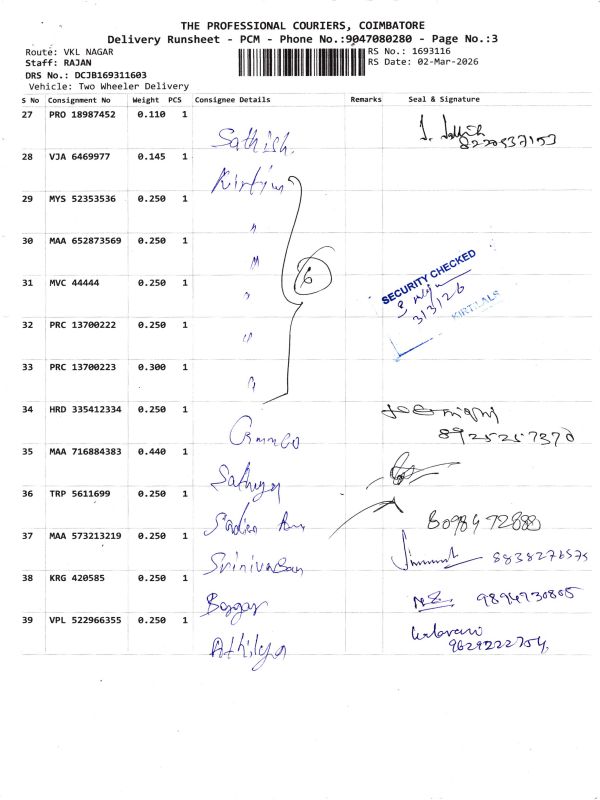 THE PROFESSIONAL COURIERS, COIMBATORE
Delivery Runsheet - PCM - Phone No.:9047080280 - Page No.:3
Route: VKL NAGAR
RS No.: 1693116
Staff: RAJAN
RS Date: 02-Mar-2026
DRS No.: DCJB169311603
Vehicle: Two Wheeler Delivery
S No Consignment No Weight PCS Consignee Details Remarks Seal & Signature
27 PRO 18987452 0.110 1
Sathish.
28 VJA 6469977 0.145 1
29 MYS 52353536 0.250 1
"
30 MAA 652873569 0.250 1
"
6
SECURITY CHECKED
31 MVC 44444 0.250 1
"
3/3/26
KIRTILALS
32 PRC 13700222 0.250 1
"
33 PRC 13700223 0.300 1
"
34 HRD 335412334 0.250 1
8925257370
35 MAA 716884383 0.440 1
Sathya
36 TRP 5611699 0.250 1
8098472888
37 MAA 573213219 0.250 1
Srinivasan
8838276575
38 KRG 420585 0.250 1
9894730805
39 VPL 522966355 0.250 1
Athilya
9629222754